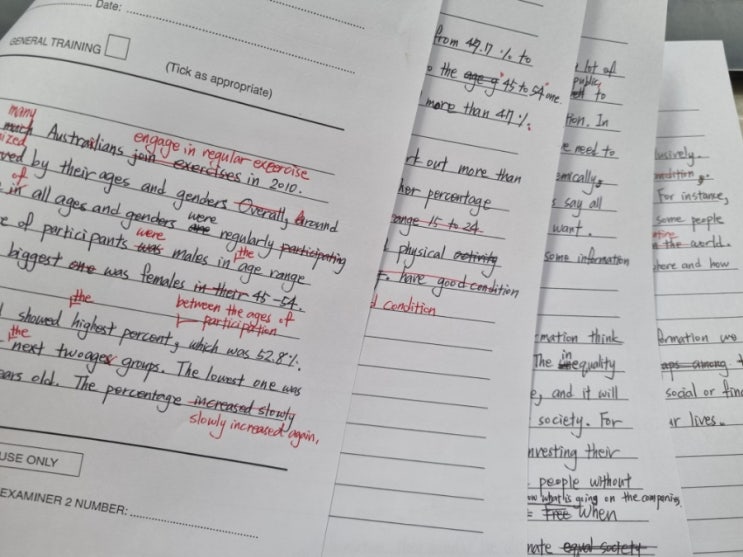 Date:
GENERAL TRAINING
(Tick as appropriate)
many
much Australians join exercises in 2010.
engage in regular exercise
ized
ved by their ages and genders Overall, Around
of
in all ages and genders are regularly participating
were
e of participants was males in age range
were
the
biggest one was females in their 45-54.
the
between the ages of
participation
showed highest percent, which was 52.8%.
the
next two ages groups. The lowest one was
ears old. The percentage increased slowly
slowly increased again,
USE ONLY
EXAMINER 2 NUMBER:
from 47.7 % to
the age 45 to 54 one.
more than 47%.
rk out more than
her percentage
ange 15 to 24
physical activity
have good condition
condition
lot of
public
to
tion. In
e need to
emically,
say all
want.
some information
mation think
The inequality
in
e, and it will
society. For
nvesting their
people without
what is going on the companies
Free When
nate equal society
usively.
ndition.
For instance,
some people
the world.
here and how
formation we
aps among
social or fin
ur lives.